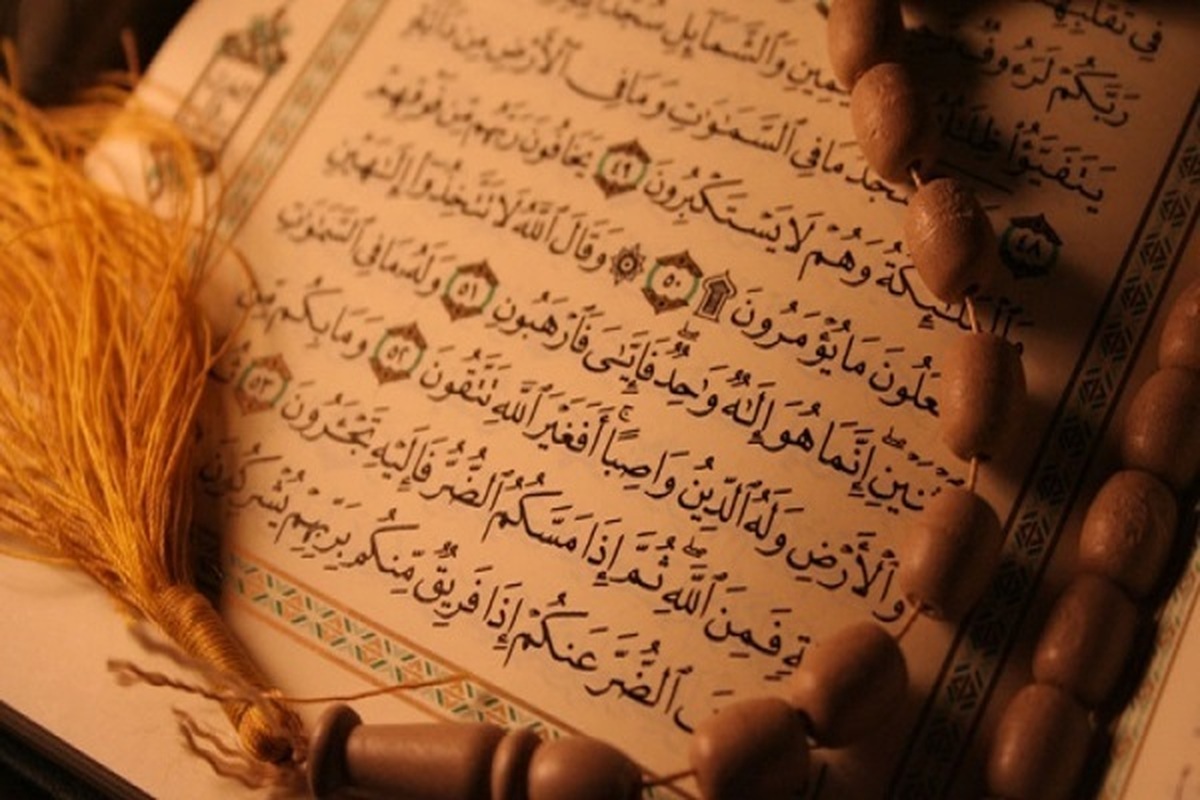 فِي تَقَلُّبِهِمْ
رَبَّكُمْ لَرَءُوفٌ
يَتَفَيَّؤُاْ ظِلَٰلُهُۥ ـيَمِينِ وَٱلشَّمَآئِلِ سُجَّدٗا
٤٨ ـسْجُدُۤ مَا فِي ٱلسَّمَٰوَٰتِ وَمَا فِي ٱلْأَرْضِ مِن دَآبَّةٖ
وَٱلْمَلَٰٓئِكَةُ وَهُمْ لَا يَسْتَكْبِرُونَ ٤٩ يَخَافُونَ رَبَّهُم مِّن فَوْقِهِمْ
ـعَلُونَ مَا يُؤْمَرُونَ ۩ ٥٠ ۞ وَقَالَ ٱللَّهُ لَا تَتَّخِذُوٓاْ إِلَٰهَيْنِ
ـنَيْنِۖ إِنَّمَا هُوَ إِلَٰهٞ وَٰحِدٞ فَإِيَّٰيَ فَٱرْهَبُونِ ٥١ وَلَهُۥ مَا فِي ٱلسَّمَٰوَٰتِ
وَٱلْأَرْضِ وَلَهُ ٱلدِّينُ وَاصِبًاۚ أَفَغَيْرَ ٱللَّهِ تَتَّقُونَ ٥٢ وَمَا بِكُم مِّن
ـةٖ فَمِنَ ٱللَّهِۖ ثُمَّ إِذَا مَسَّكُمُ ٱلضُّرُّ فَإِلَيْهِ تَجْـَٔرُونَ ٥٣
ـفَ ٱلضُّرَّ عَنكُمْ إِذَا فَرِيقٞ مِّنكُم بِرَبِّهِمْ يُشْرِكُونَ